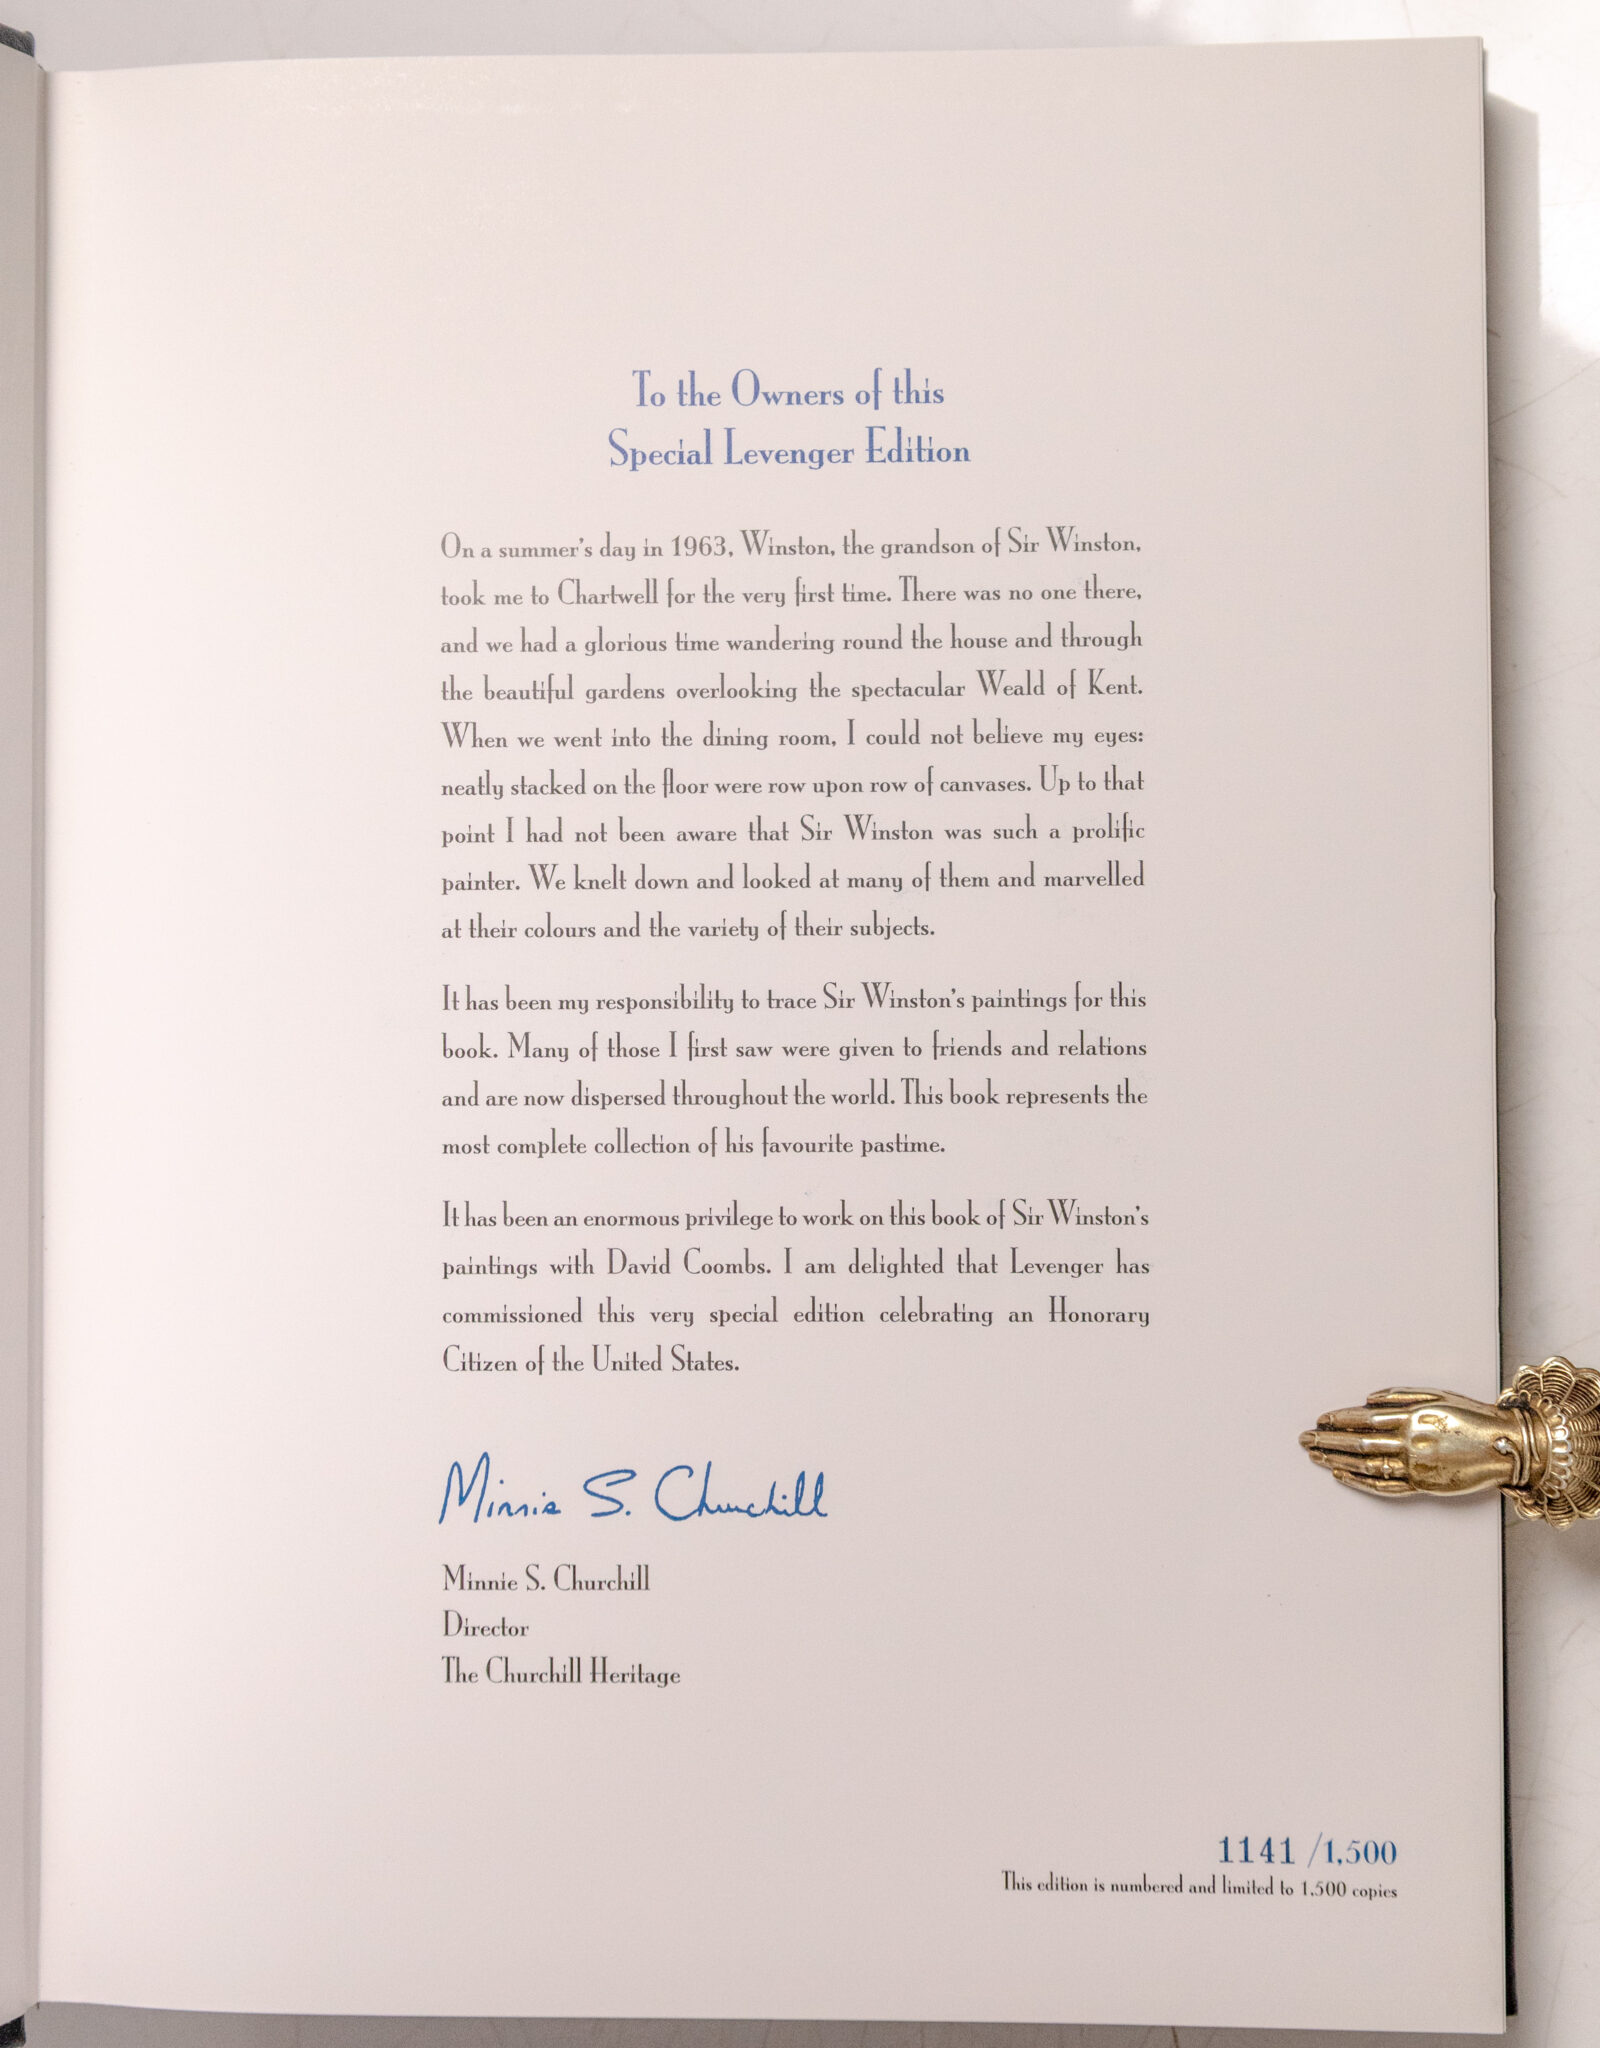 To the Owners of this
Special Levenger Edition
On a summer's day in 1963, Winston, the grandson of Sir Winston,
took me to Chartwell for the very first time. There was no one there,
and we had a glorious time wandering round the house and through
the beautiful gardens overlooking the spectacular Weald of Kent.
When we went into the dining room, I could not believe my eyes:
neatly stacked on the floor were row upon row of canvases. Up to that
point I had not been aware that Sir Winston was such a prolific
painter. We knelt down and looked at many of them and marvelled
at their colours and the variety of their subjects.
It has been my responsibility to trace Sir Winston's paintings for this
book. Many of those I first saw were given to friends and relations
and are now dispersed throughout the world. This book represents the
most complete collection of his favourite pastime.
It has been an enormous privilege to work on this book of Sir Winston's
paintings with David Coombs. I am delighted that Levenger has
commissioned this very special edition celebrating an Honorary
Citizen of the United States.
Minnie S. Churchill
Minnie S. Churchill
Director
The Churchill Heritage
1141 /1,500
This edition is numbered and limited to 1,500 copies